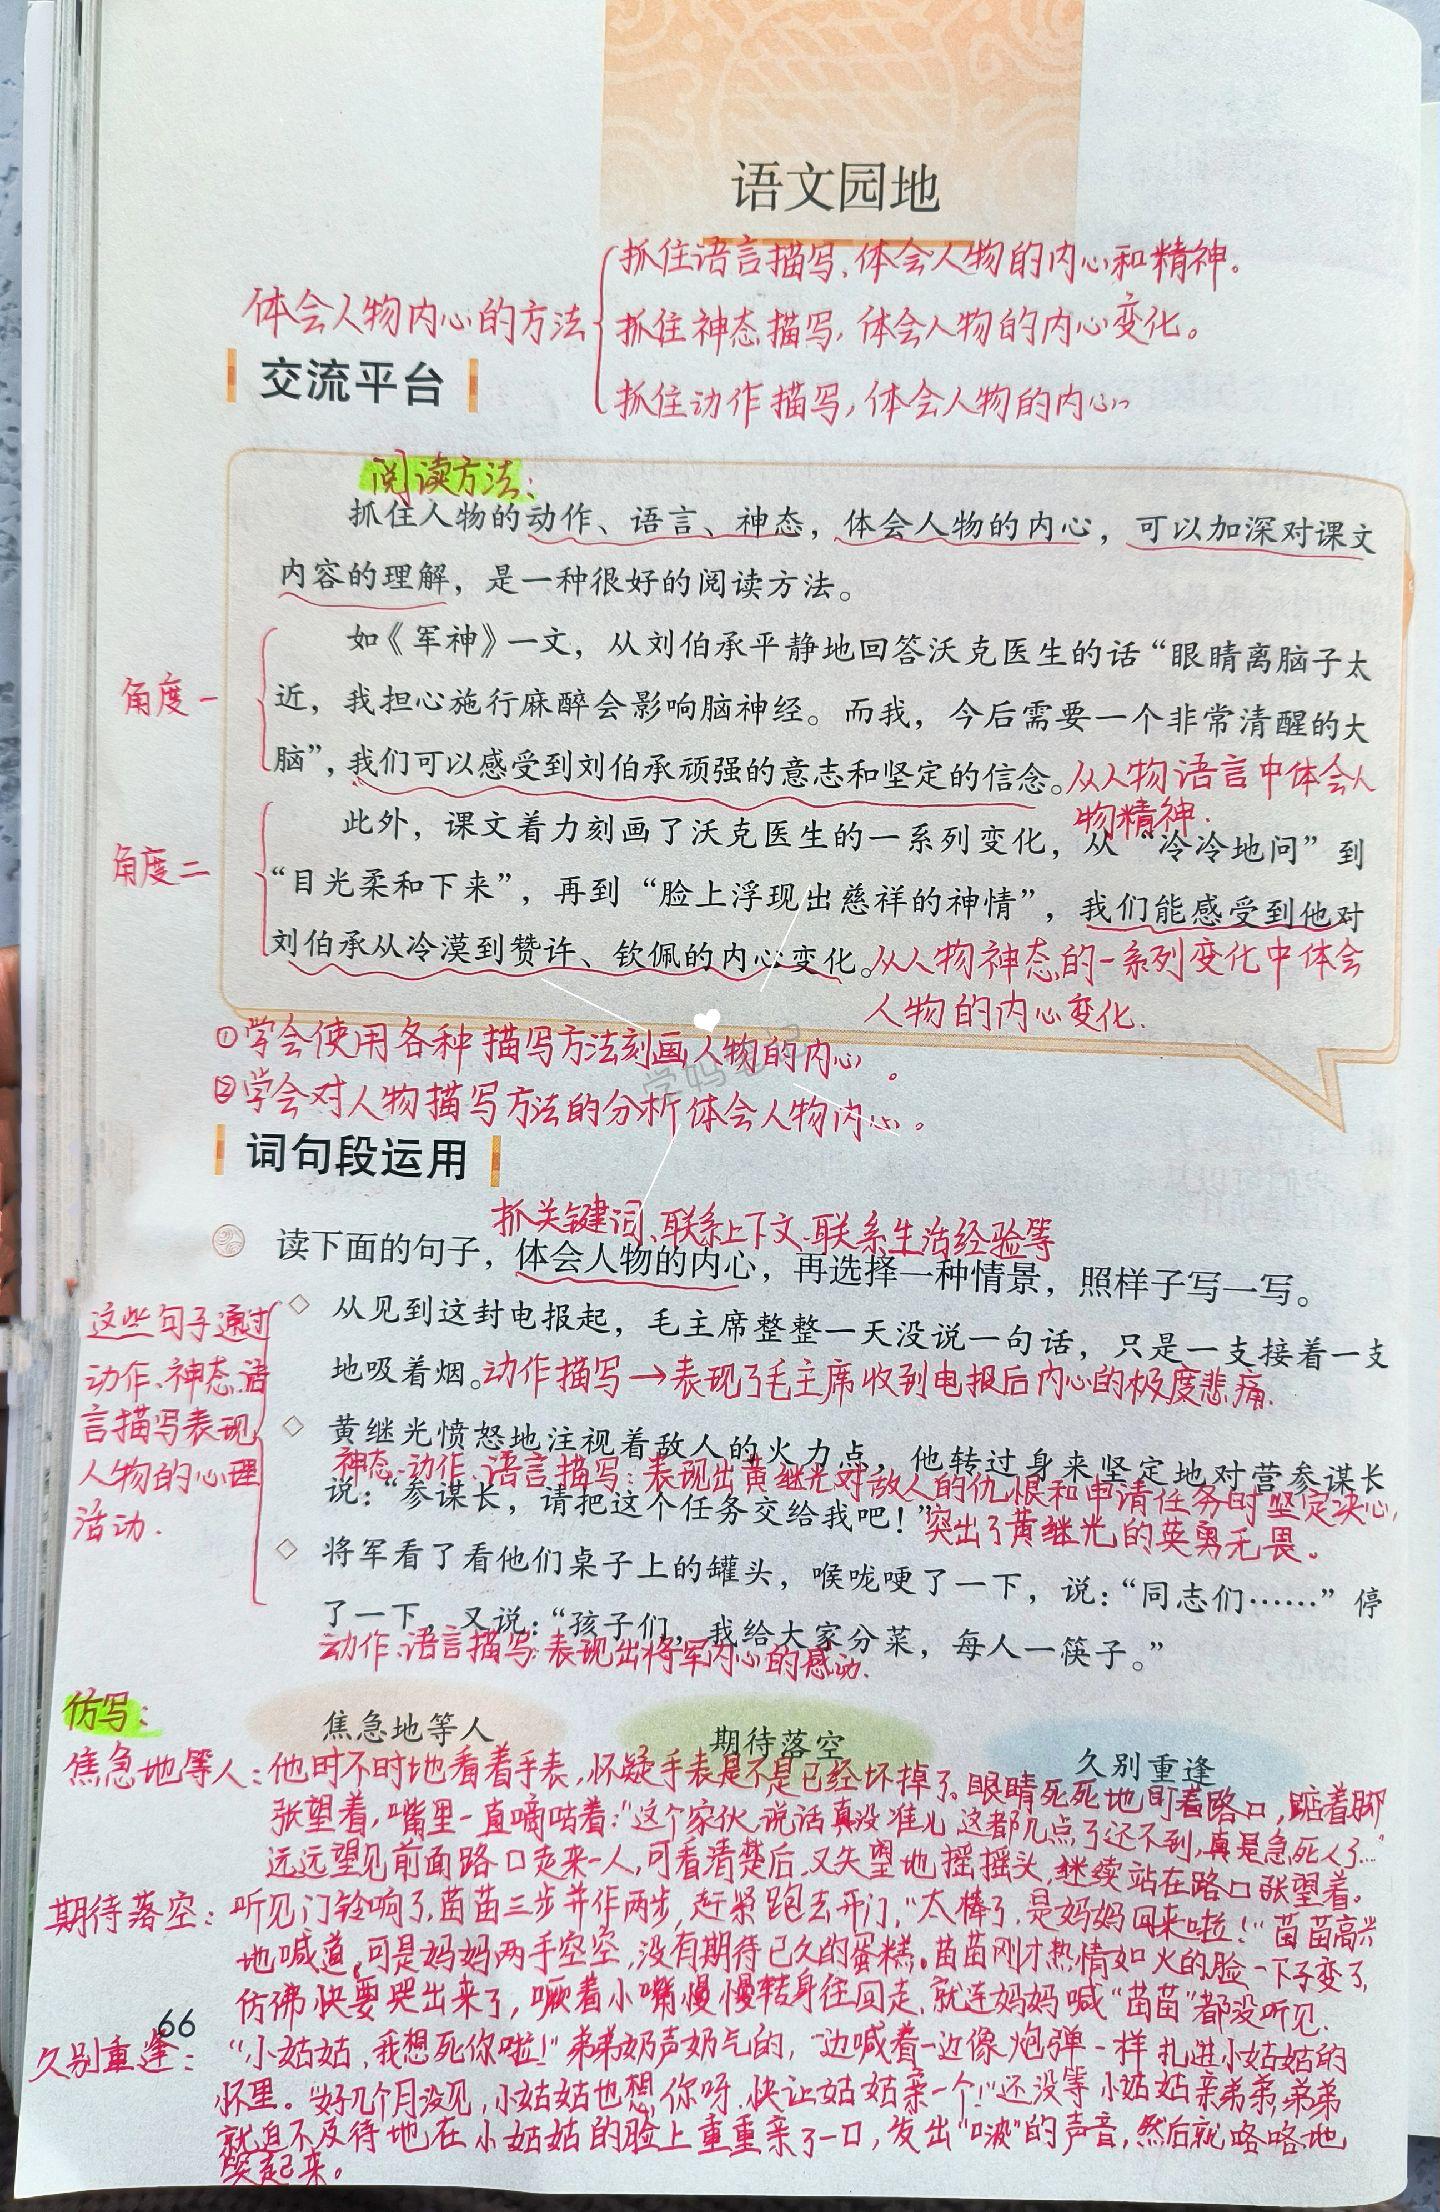 语文园地
体会人物内心的方法
抓住语言描写、体会人物的内心和精神。
抓住神态描写，体会人物的内心变化。
抓住动作描写，体会人物的内心
交流平台
阅读方法：
抓住人物的动作、语言、神态，体会人物的内心，可以加深对课文
内容的理解，是一种很好的阅读方法。
角度一
如《军神》一文，从刘伯承平静地回答沃克医生的话“眼睛离脑子太
近，我担心施行麻醉会影响脑神经。而我，今后需要一个非常清醒的大
脑”，我们可以感受到刘伯承顽强的意志和坚定的信念。
从人物语言中体会人
物精神.
角度二
此外，课文着力刻画了沃克医生的一系列变化，从“冷冷地问”到
“目光柔和下来”，再到“脸上浮现出慈祥的神情”，我们能感受到他对
刘伯承从冷漠到赞许、钦佩的内心变化。
从人物神态的一系列变化中体会
人物的内心变化.
①学会使用各种描写方法刻画人物的内心。
②学会对人物描写方法的分析体会人物内心。
学妈笔记
词句段运用
抓关键词、联系上下文、联系生活经验等
读下面的句子，体会人物的内心，再选择一种情景，照样子写一写。
这些句子通过
动作、神态、语
言描写表现
人物的心理
活动.
◇ 从见到这封电报起，毛主席整整一天没说一句话，只是一支接着一支
地吸着烟。
动作描写→表现了毛主席收到电报后内心的极度悲痛.
◇ 黄继光愤怒地注视着敌人的火力点，他转过身来坚定地对营参谋长
说：“参谋长，请把这个任务交给我吧！”
神态、动作、语言描写：表现出黄继光对敌人的仇恨和申请任务时坚定决心，
突出了黄继光的英勇无畏。
◇ 将军看了看他们桌子上的罐头，喉咙哽了一下，说：“同志们……”停
了一下，又说：“孩子们，我给大家分菜，每人一筷子。”
动作、语言描写：表现出将军内心的感动.
仿写：
焦急地等人
期待落空
久别重逢
焦急地等人：他时不时地看着手表，怀疑手表是不是已经坏掉了。眼睛死死地盯着路口，踮着脚
张望着，嘴里一直嘀咕着：“这个家伙，说话真没准儿，这都几点了还不到，真是急死人了…”
远远望见前面路口走来一人，可看清楚后，又失望地摇摇头，继续站在路口张望着。
期待落空：听见门铃响了，苗苗三步并作两步，赶紧跑去开门，“太棒了，是妈妈回来啦！”苗苗高兴
地喊道。可是妈妈两手空空，没有期待已久的蛋糕。苗苗刚才热情如火的脸一下子变了，
仿佛快要哭出来了，噘着小嘴慢慢转身往回走，就连妈妈喊“苗苗”都没听见.
66
久别重逢：“小姑姑，我想死你啦！”弟弟奶声奶气的，一边喊着一边像炮弹一样扎进小姑姑的
怀里。“好几个月没见，小姑姑也想你呀，快让姑姑亲一个！”还没等小姑姑亲弟弟，弟弟
就迫不及待地在小姑姑的脸上重重亲了一口，发出“啵”的声音，然后就咯咯地
笑起来。